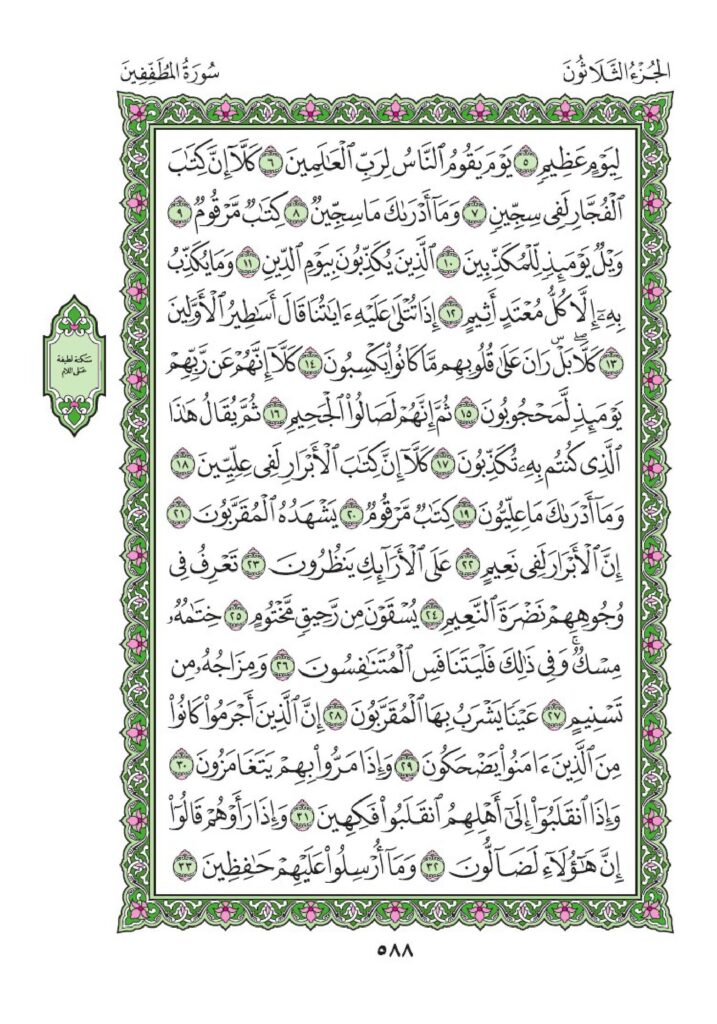 الجُزْءُ الثَّلَاثُونَ
سُورَةُ المُطَفِّفِينَ
لِيَوْمٍ عَظِيمٍ ٥ يَوْمَ يَقُومُ ٱلنَّاسُ لِرَبِّ ٱلْعَٰلَمِينَ ٦ كَلَّآ إِنَّ كِتَٰبَ
ٱلْفُجَّارِ لَفِى سِجِّينٍ ٧ وَمَآ أَدْرَىٰكَ مَا سِجِّينٌ ٨ كِتَٰبٌ مَّرْقُومٌ ٩
وَيْلٌ يَوْمَئِذٍ لِّلْمُكَذِّبِينَ ١٠ ٱلَّذِينَ يُكَذِّبُونَ بِيَوْمِ ٱلدِّينِ ١١ وَمَا يُكَذِّبُ
بِهِۦٓ إِلَّا كُلُّ مُعْتَدٍ أَثِيمٍ ١٢ إِذَا تُتْلَىٰ عَلَيْهِ ءَايَٰتُنَا قَالَ أَسَٰطِيرُ ٱلْأَوَّلِينَ
١٣ كَلَّا ۖ بَلْ ۜ رَانَ عَلَىٰ قُلُوبِهِم مَّا كَانُوا۟ يَكْسِبُونَ ١٤ كَلَّآ إِنَّهُمْ عَن رَّبِّهِمْ
يَوْمَئِذٍ لَّمَحْجُوبُونَ ١٥ ثُمَّ إِنَّهُمْ لَصَالُوا۟ ٱلْجَحِيمِ ١٦ ثُمَّ يُقَالُ هَٰذَا
ٱلَّذِى كُنتُم بِهِۦ تُكَذِّبُونَ ١٧ كَلَّآ إِنَّ كِتَٰبَ ٱلْأَبْرَارِ لَفِى عِلِّيِّينَ ١٨
وَمَآ أَدْرَىٰكَ مَا عِلِّيُّونَ ١٩ كِتَٰبٌ مَّرْقُومٌ ٢٠ يَشْهَدُهُ ٱلْمُقَرَّبُونَ ٢١
إِنَّ ٱلْأَبْرَارَ لَفِى نَعِيمٍ ٢٢ عَلَى ٱلْأَرَآئِكِ يَنظُرُونَ ٢٣ تَعْرِفُ فِى
وُجُوهِهِمْ نَضْرَةَ ٱلنَّعِيمِ ٢٤ يُسْقَوْنَ مِن رَّحِيقٍ مَّخْتُومٍ ٢٥ خِتَٰمُهُۥ
مِسْكٌ ۚ وَفِى ذَٰلِكَ فَلْيَتَنَافَسِ ٱلْمُتَنَٰفِسُونَ ٢٦ وَمِزَاجُهُۥ مِن
تَسْنِيمٍ ٢٧ عَيْنًا يَشْرَبُ بِهَا ٱلْمُقَرَّبُونَ ٢٨ إِنَّ ٱلَّذِينَ أَجْرَمُوا۟ كَانُوا۟
مِنَ ٱلَّذِينَ ءَامَنُوا۟ يَضْحَكُونَ ٢٩ وَإِذَا مَرُّوا۟ بِهِمْ يَتَغَامَزُونَ ٣٠
وَإِذَا ٱنقَلَبُوٓا۟ إِلَىٰٓ أَهْلِهِمُ ٱنقَلَبُوا۟ فَكِهِينَ ٣١ وَإِذَا رَأَوْهُمْ قَالُوٓا۟
إِنَّ هَٰٓؤُلَآءِ لَضَآلُّونَ ٣٢ وَمَآ أُرْسِلُوا۟ عَلَيْهِمْ حَٰفِظِينَ ٣٣
سكتة لطيفة
على اللام
٥٨٨